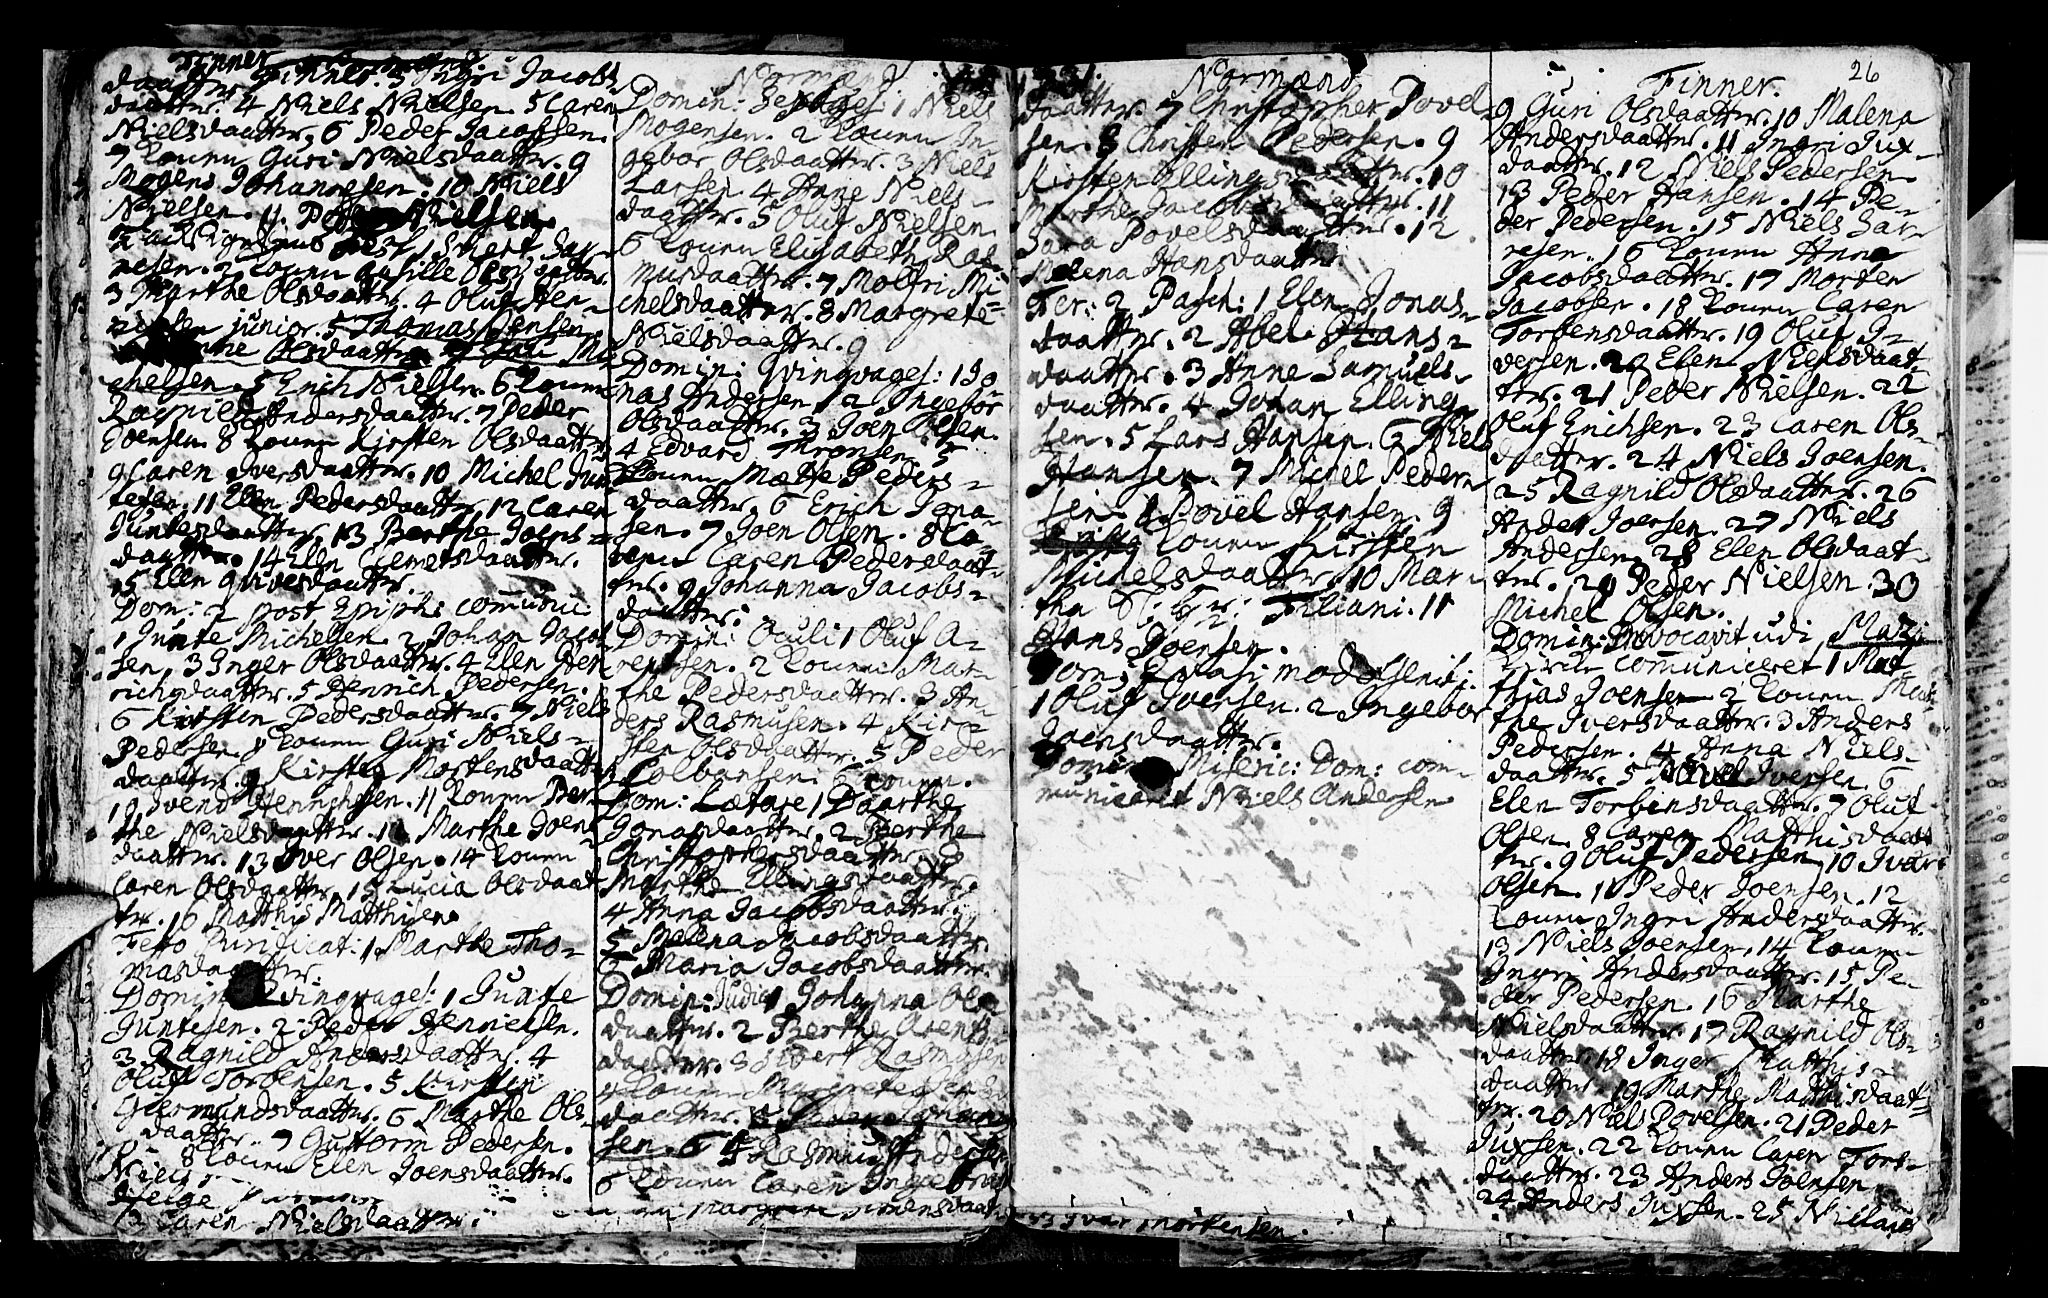 Finner
daatter. 3 Ingri Jacobs
daatter. 4 Niels Nielsen. 5 Caren
Nielsdaatter. 6 Peder Jacobsen.
7 Konen Guri Nielsdaatter. 9
Mogens Johannesen. 10 Niels
Nielsen. 11 Nielsen.
nesen. 2 Konen
3 Marthe Olsdaatter. 4 Oluf Hen-
junior. 5 Thomas Jensen
Olsdaatter
chelsen. 5 Erich Nielsen. 6 Konen
Ragnild Andersdaatter. 7 Peder
Joensen. 8 Konen Kirsten Olsdaatter
9 Caren Iversdaatter. 10 Michel Jun
tesen. 11 Elen Pedersdaatter. 12 Caren
Juntesdaatter. 13 Berthe Joens-
daatter. 14 Elen Clemetsdaatter.
15 Elen
Dom: 2 post Epiph: comunic:
1 Junte Michelsen. 2 Johan Jacob
sen. 3 Inger Olsdaatter. 4 Elen Hen
richsdaatter. 5 Henrich Pedersen.
6 Kirsten Pedersdaatter. 7 Niels
Pedersen. 8 Konen Guri Niels-
daatter. 9 Kirsten Mortensdaatter
10 Svend Henrichsen. 11 Konen Ber
the Nielsdaatter. 12 Marthe Joens
daatter. 13 Iver Olsen. 14 Konen
Caren Olsdaatter. 15 Lucia Olsdaat
ter. 16 Matthis Matthisen.
Festo Purificat: 1 Marthe Tho-
masdaatter.
Domin: Qvinqvages: 1 Junte
Juntesen. 2 Peder Henricksen.
3 Ragnild Andersdaatter. 4
Oluf Torbensen. 5 Kirsten
Giermundsdaatter. 6 Marthe Ols-
daatter. 7 Guttorm Pedersen.
8 Konen Elen Joensdaatter.
Helge
12 Caren Nielsdaatter.
Normænd
Domin: Sexages: 1 Niels
Mogensen. 2 Konen In-
gebor Olsdaatter. 3 Niels
Larsen. 4 Anne Niels-
daatter. 5 Oluf Nielsen.
6 Konen Elisabeth Ras
musdaatter. 7 Molfri Mi-
chelsdaatter. 8 Margrete
Nielsdaatter. 9
Domin: Qvinqvages: 1 Jo
nas Andersen. 2 Ingebor
Olsdaatter. 3 Joen Olsen.
4 Edvard Thronsen. 5
Konen Mætte Peders-
daatter. 6 Erich Jona-
sen. 7 Joen Olsen. 8 Ko
nen Caren Pedersdaat-
ter. 9 Johanna Jacobs-
daatter.
Domin: Oculi 1 Oluf A-
rentsen. 2 Konen Mar-
the Pedersdaatter. 3 An-
ders Rasmusen. 4 Kir-
sten Olsdaatter. 5 Peder
Colbansen. 6 Konen.
Dom: Lætare 1 Maarthe
Jonasdaatter. 2 Berthe
Christophersdaatter. 3
Marthe Ellingsdaatter.
4 Anna Jacobsdaatter.
5 Malena Jacobsdaatter
6 Maria Jacobsdaatter.
Domin: Judica 1 Johanna Ols-
daatter. 2 Berthe Arents-
daatter. 3 Sivert Rasmusen
4 Konen Margrete
daatter.
sen. Rasmus Andersen
6 Konen Caren Ingebrigts
Margrete Simensdaatter
Normænd
daatter. 7 Christopher Povel-
sen. 8 Christen Pedersen. 9
Kirsten Ellingsdaatter. 10
Marthe Jacobsdaatter. 11
Sara Povelsdaatter. 12
Malena Hansdaatter
Fer: 2 Pasch: 1 Elen Jonas-
daatter. 2 Abel Hans-
daatter. 3 Anne Samuels-
daatter. 4 Johan Elling-
sen. 5 Lars Hansen. 6 Niels
Hansen. 7 Michel Peder-
sen. 8 Povel Hansen. 9
Konen Kirsten
Michelsdaatter. 10 Mar-
tha Filiani. 11
Hans Joensen.
Dom: Qvasimodogenit:
1 Oluf Iversen. 2 Ingebor
Joensdaatter.
Domin: Miseric: Dom: com-
municerit Niels Andersen
13 Ivar Mortensen.
26
Finner.
9 Guri Olsdaatter. 10 Malena
Andersdaatter. 11 Ingri Jux-
daatter. 12 Niels Pedersen.
13 Peder Hansen. 14 Pe-
der Pedersen. 15 Niels Lar-
sen. 16 Konen Anna
Jacobsdaatter. 17 Morten
Jacobsen. 18 Konen Caren
Torbensdaatter. 19 Oluf I-
versen. 20 Elen Nielsdaat-
ter. 21 Peder Nielsen. 22
Oluf Erichsen. 23 Caren Ols-
daatter. 24 Niels Joensen.
25 Ragnild Olsdaatter. 26
Anders Joensen. 27 Niels
Andersen. 28 Elen Olsdaat-
ter. 29 Peder Nielsen. 30
Michel Olsen.
Domin: Invocavit udi Mazi
Kircke communiceret 1 Mat
thias Joensen. 2 Konen Mar
the Iversdaatter. 3 Anders
Pedersen. 4 Anna Niels-
daatter. 5 Povel Iversen. 6
Elen Torbensdaatter. 7 Oluf
Olsen. 8 Caren Matthisdaat
ter. 9 Oluf Pedersen. 10 Ivar
Olsen. 11 Peder Joensen. 12
Konen Ingri Andersdaatter.
13 Niels Joensen. 14 Konen
Ingri Andersdaatter. 15 Pe-
der Pedersen. 16 Marthe
Nielsdaatter. 17 Ragnild Ols-
daatter. 18 Inger Matthis-
daatter. 19 Marthe Matthisdaat-
ter. 20 Niels Povelsen. 21 Peder
Juxsen. 22 Konen Caren Tors-
daatter. 23 Anders Joensen
24 Anders Juxsen. 25 Niclais